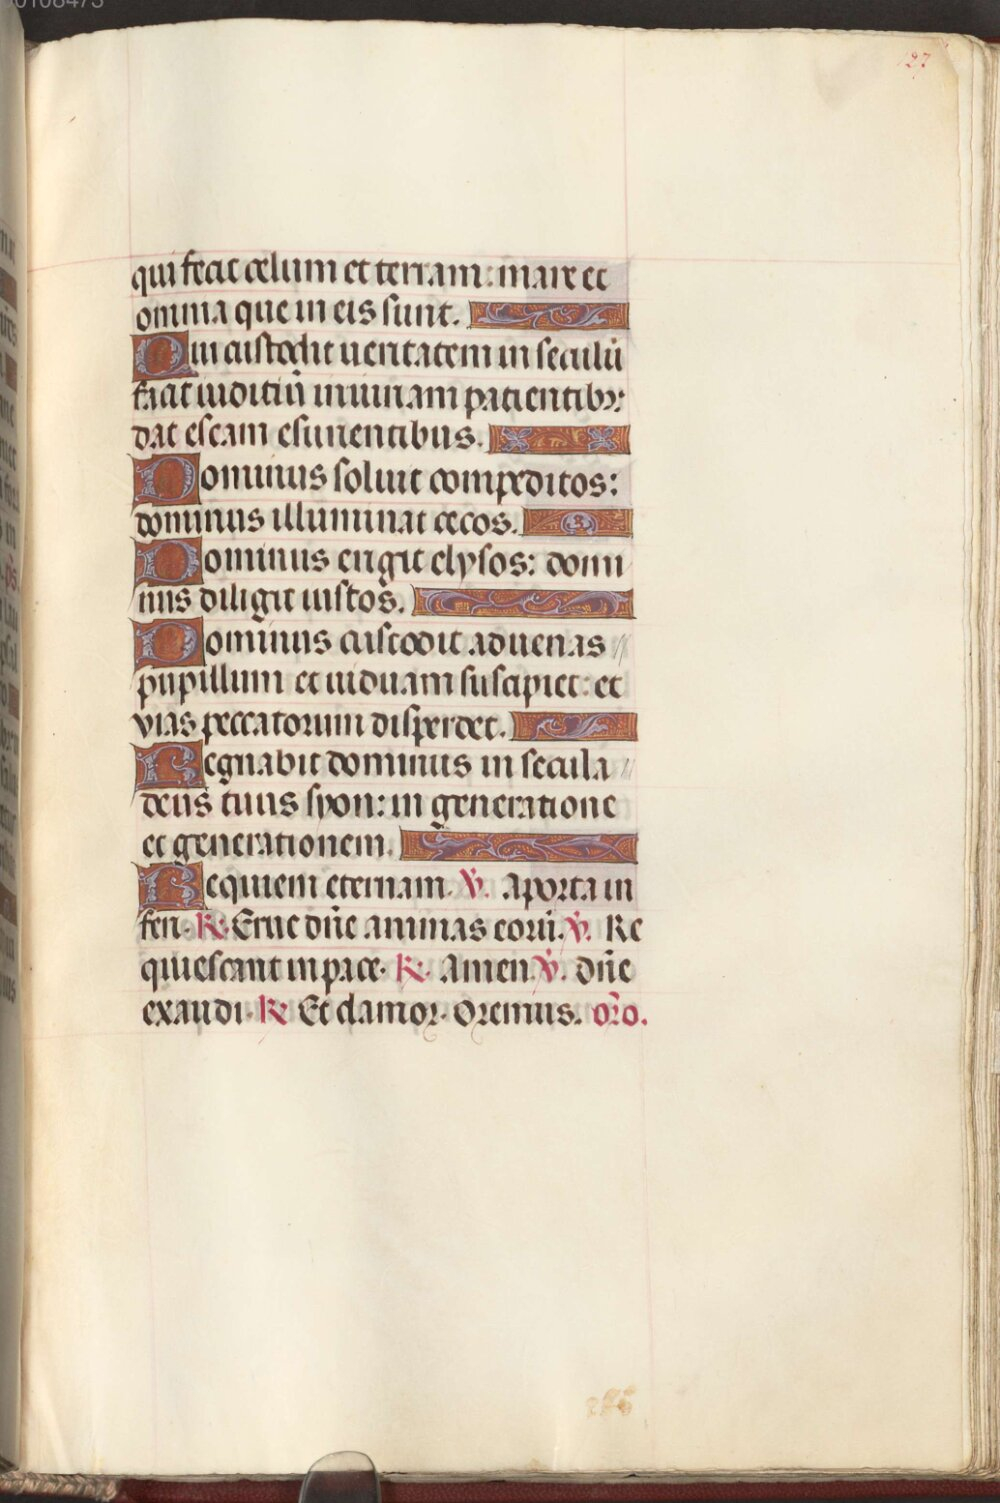 127
qui fecit celum et terram: mare et
omnia que in eis sunt.
Qui custodit ueritatem in seculū
facit iuditiū iniuriam patientibꝫ:
dat escam esurientibus.
Dominus soluit compeditos:
dominus illuminat cecos.
Dominus erigit elysos: domi
nus diligit iustos.
Dominus custodit aduenas
pupillum et uiduam suscipiet: et
vias peccatorum disperdet.
Regnabit dominus in secula
deus tuus syon: in generatione
et generationem.
Requiem eternam. ℣. Aporta in
feri. ℟. Erue dn̄e animas eorū. ℣. Re
quiescant in pace. ℟. Amen. ℣. dn̄e
exaudi. ℟. Et clamor. Oremus. or̄o.